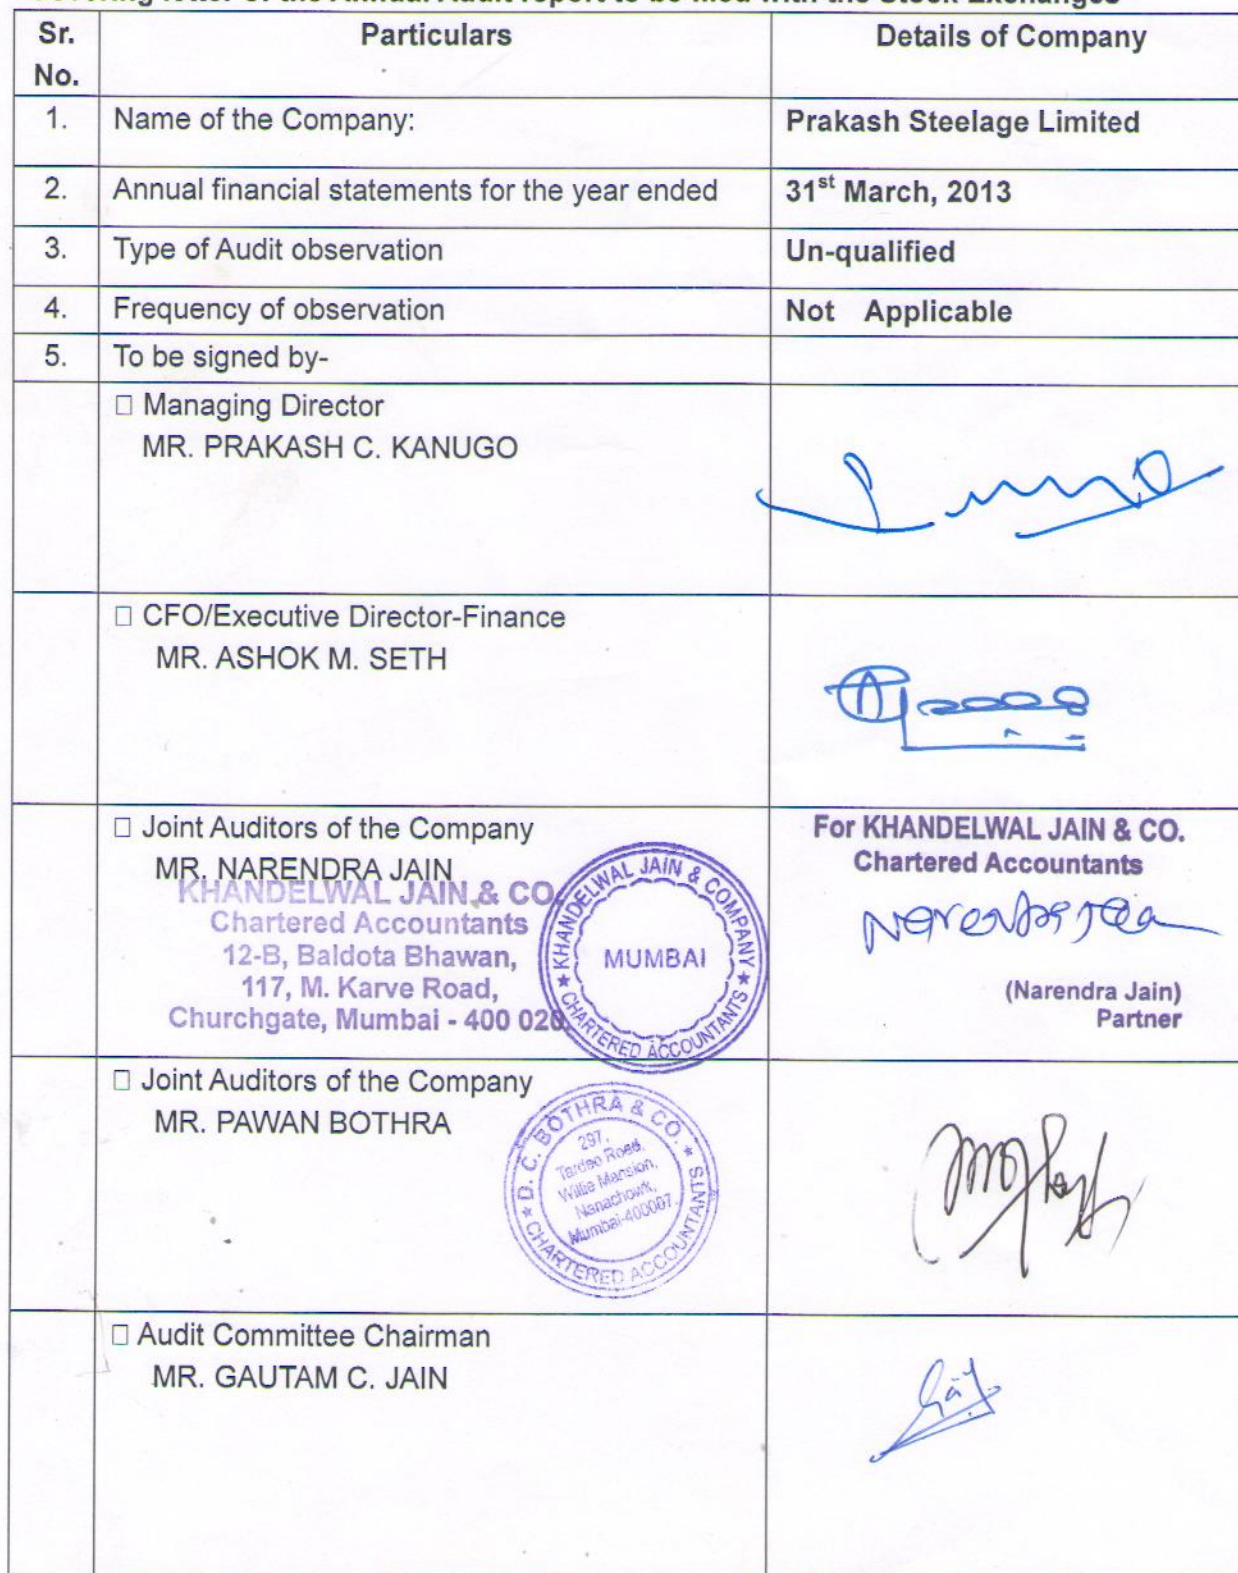 Covering letter of the Annual Audit report to be filed with the Stock Exchanges
Sr. No. Particulars Details of Company
1. Name of the Company: Prakash Steelage Limited
2. Annual financial statements for the year ended 31st March, 2013
3. Type of Audit observation Un-qualified
4. Frequency of observation Not Applicable
5. To be signed by-
□ Managing Director
MR. PRAKASH C. KANUGO
□ CFO/Executive Director-Finance
MR. ASHOK M. SETH
□ Joint Auditors of the Company
MR. NARENDRA JAIN
KHANDELWAL JAIN & CO.
Chartered Accountants
12-B, Baldota Bhawan,
117, M. Karve Road,
Churchgate, Mumbai - 400 020.
KHANDELWAL JAIN & COMPANY
MUMBAI
★ CHARTERED ACCOUNTANTS ★
For KHANDELWAL JAIN & CO.
Chartered Accountants
Narendra Jain
(Narendra Jain)
Partner
□ Joint Auditors of the Company
MR. PAWAN BOTHRA
★ D. C. BOTHRA & CO. ★
297,
Tardeo Road,
Willie Mansion,
Nanachowk,
Mumbai-400007.
CHARTERED ACCOUNTANTS
□ Audit Committee Chairman
MR. GAUTAM C. JAIN